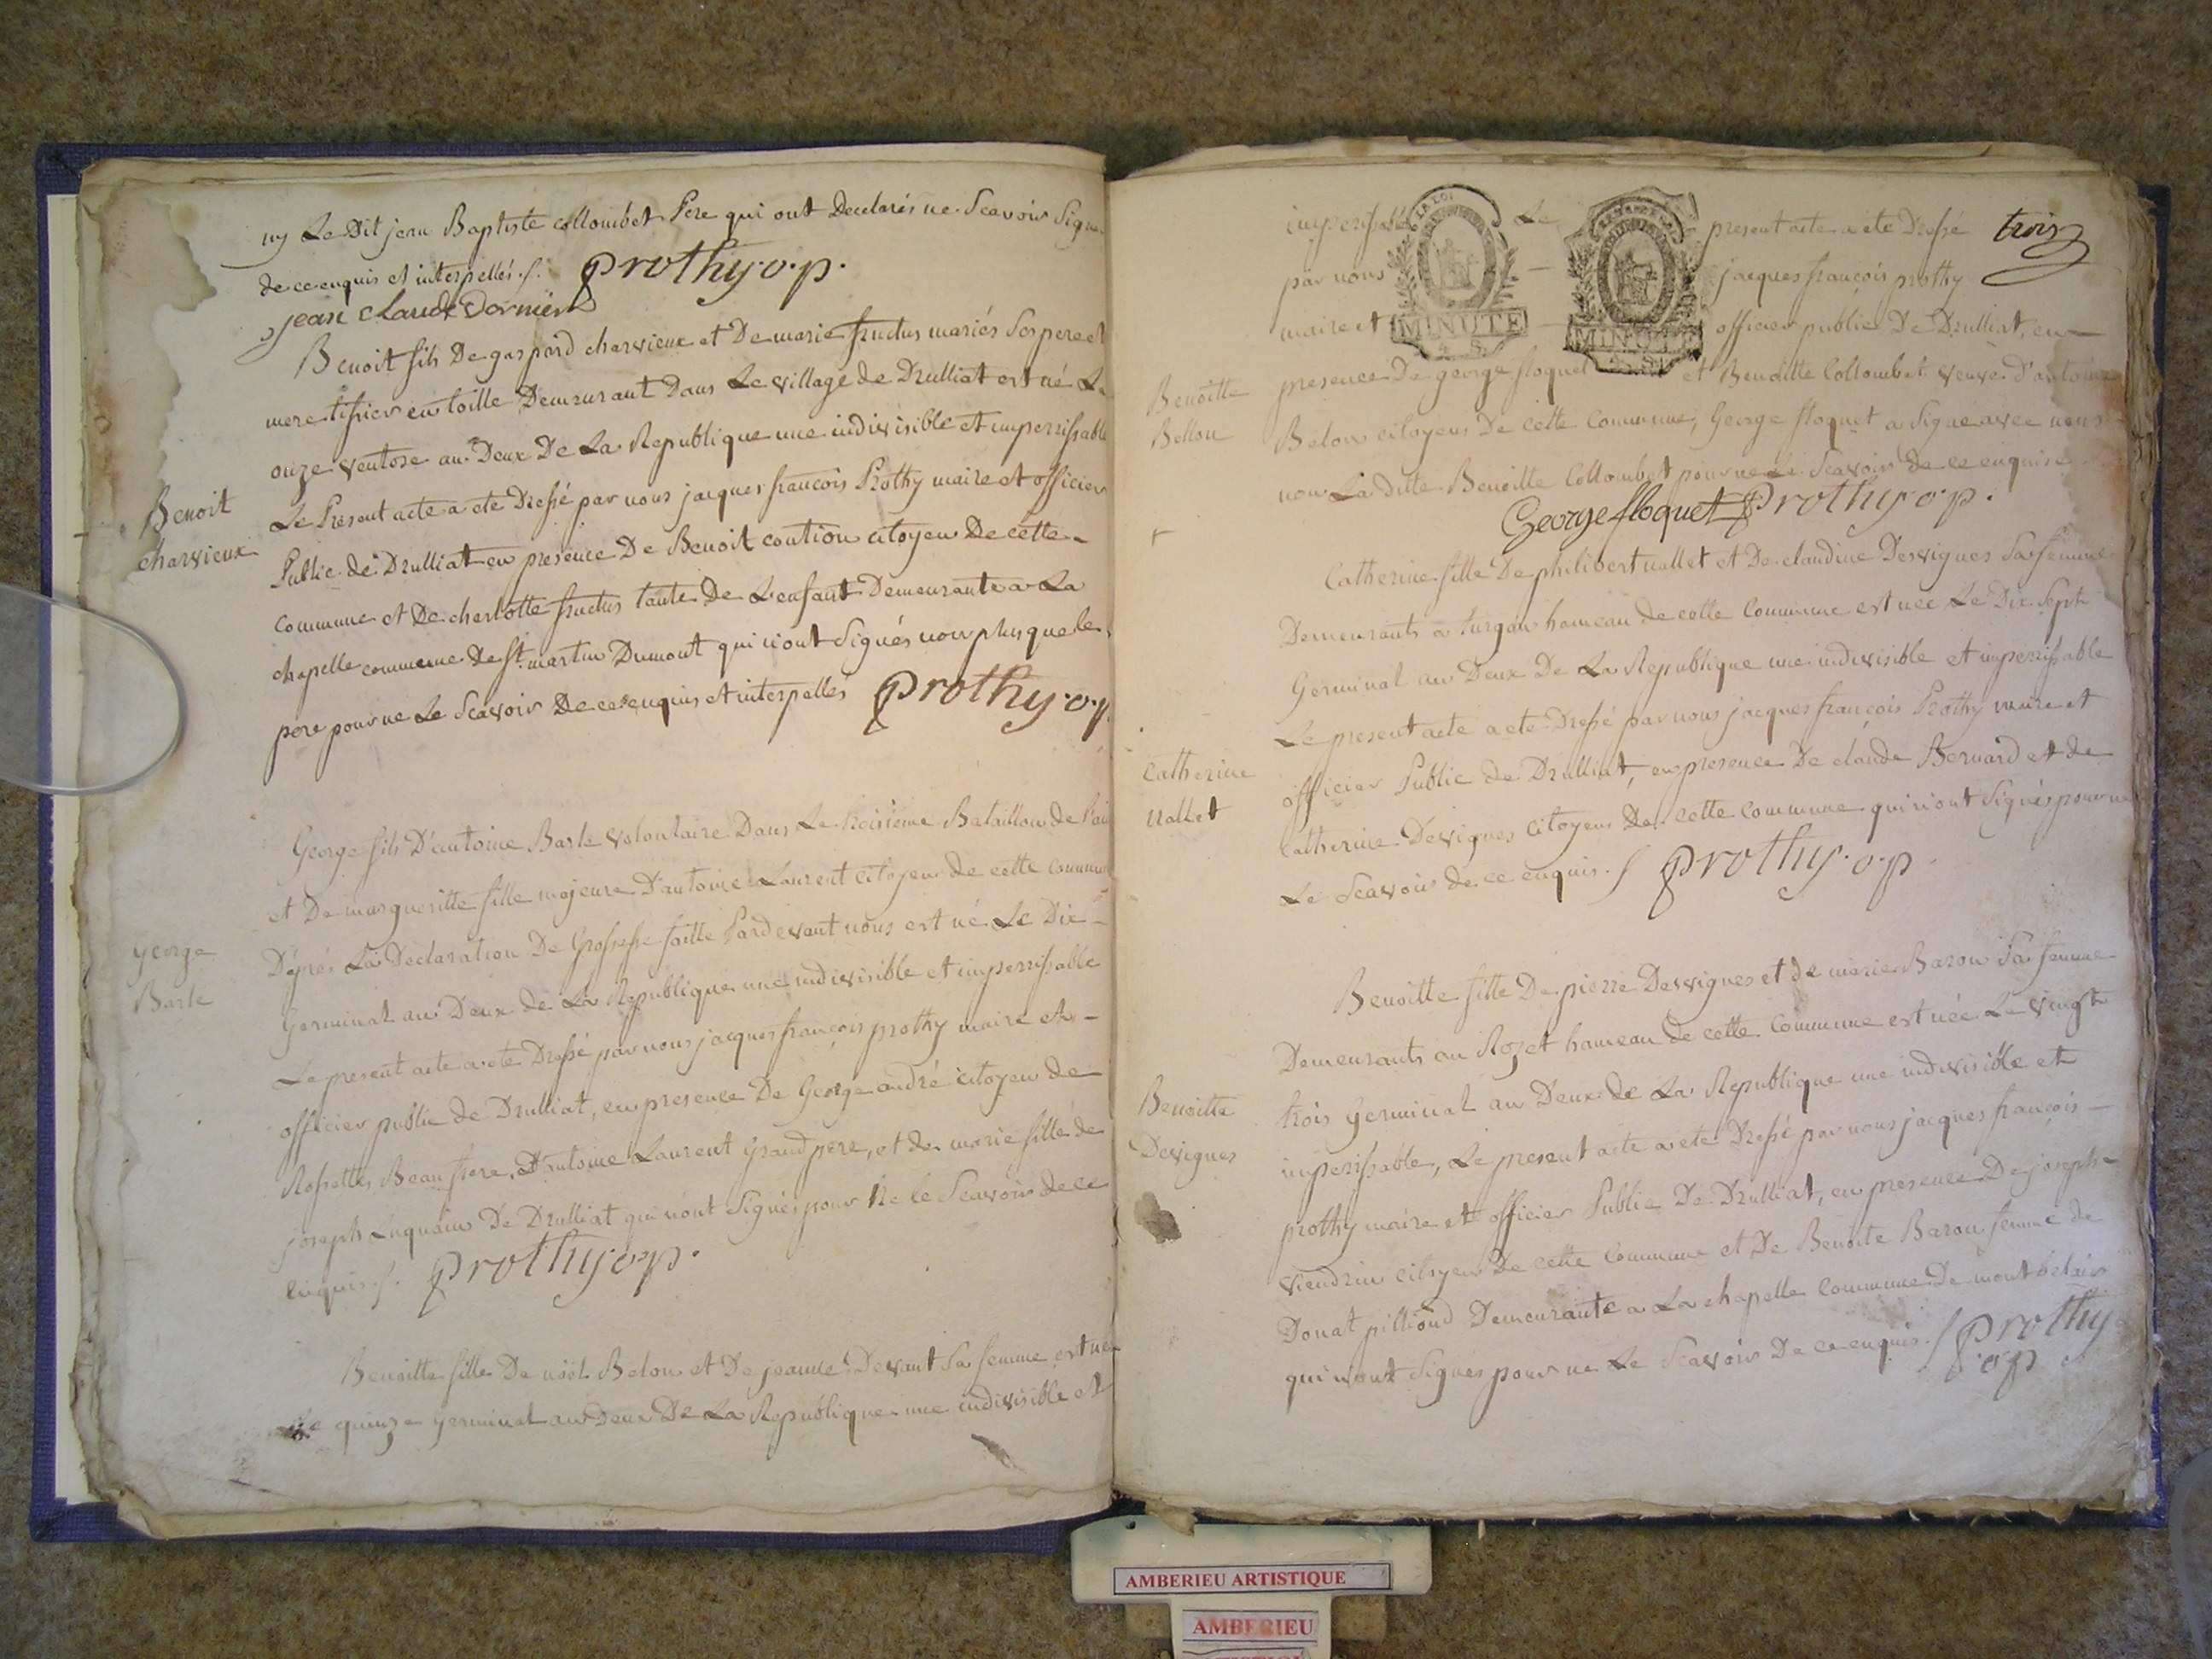 ny Le Dit jean Baptiste collombet Pere qui ont Declarés ne Scavoir Signe
de ce enquis et interpellés ./. Prothy o.p.
jean Claude Dornier
Benoit fils De gaspard charvieux et De marie fructus mariés Ses pere et
mere tissier en toille Demeurant Dans Le village de Drulliat est né Le
onze ventose an Deux De La Republique une indivisible et imperissable
Le Present acte a ete Dressé par nous jacques francois Prothy maire et officier
Benoit
charvieux
Public de Drulliat en presence De Benoit coution citoyen De cette
commune et De charlotte fructus tante De L'enfant Demeurante a La
chapelle commune de St. martin Dumont qui n'ont Signés non plus que le
pere pour ne Le Scavoir De ce enquis et interpellés Prothy o.p.
George fils D'antoine Barle volontaire Dans Le troisieme Bataillon de
et De margueritte fille majeure D'antoine Laurent citoyen de cette commune
D'aprés La Declaration De Grossesse faitte Pardevant nous est né Le Dix
george
Barle
Germinal an Deux de La Republique une indivisible et imperissable
Le present acte a ete Dressé par nous jacques francois prothy maire et
officier public de Drulliat, en presence De George andré citoyen de
Beau frere, D'antoine Laurent Grand pere, et de marie fille de
joseph De Drulliat qui n'ont Signés pour Ne le Scavoir de ce
enquis ./. Prothy o.p.
Benoitte fille De noël Belon et De jeanne Devant Sa femme est née
Le quinze germinal an Deux De La Republique une indivisible et
imperissable Le present acte a ete Dressé trois
LA LOI
par nous jacques francois prothy
maire et officier public De Drulliat, en
MINUTE
4. S.
MINUTE
Benoitte
Bellon
presence De george floquet et Benoitte Collombet veuve D'antoine
Belon citoyens De cette commune, George floquet a Signe avec nous
non La ditte Benoitte Collombet pour ne Le Scavoir de ce enquise
George floquet Prothy o.p.
Catherine fille De philibert uallet et De claudine Desvignes Sa femme
Demeurants a turgon hameau de cette Commune est née Le Dix Sept
Germinal an Deux De La Republique une indivisible et imperissable
Le present acte a ete Dressé par nous jacques francois Prothy maire et
Catherine
Uallet
officier Public de Drulliat, en presence De claude Bernard et de
Catherine Devignes citoyens De cette Commune qui n'ont Signés pour ne
Le Scavoir de ce enquis ./ Prothy o.p
Benoitte fille De pierre Desvignes et de marie Baron Sa femme
Demeurants au Rozet hameau de cette Commune est née Le vingt
Benoitte
Devignes
trois Germinal an Deux de La Republique une indivisible et
imperissable, Le present acte a ete Dressé par nous jacques francois
prothy maire et officier Public De Drulliat, en presence De joseph
viendrin citoyen De cette Commune et De Benoite Baron femme de
Donat pillioud Demeurante a La chapelle Commune De montbelair
qui n'ont Signés pour ne Le Scavoir De ce enquis ./ Prothy
o.p
AMBERIEU ARTISTIQUE
AMBERIEU